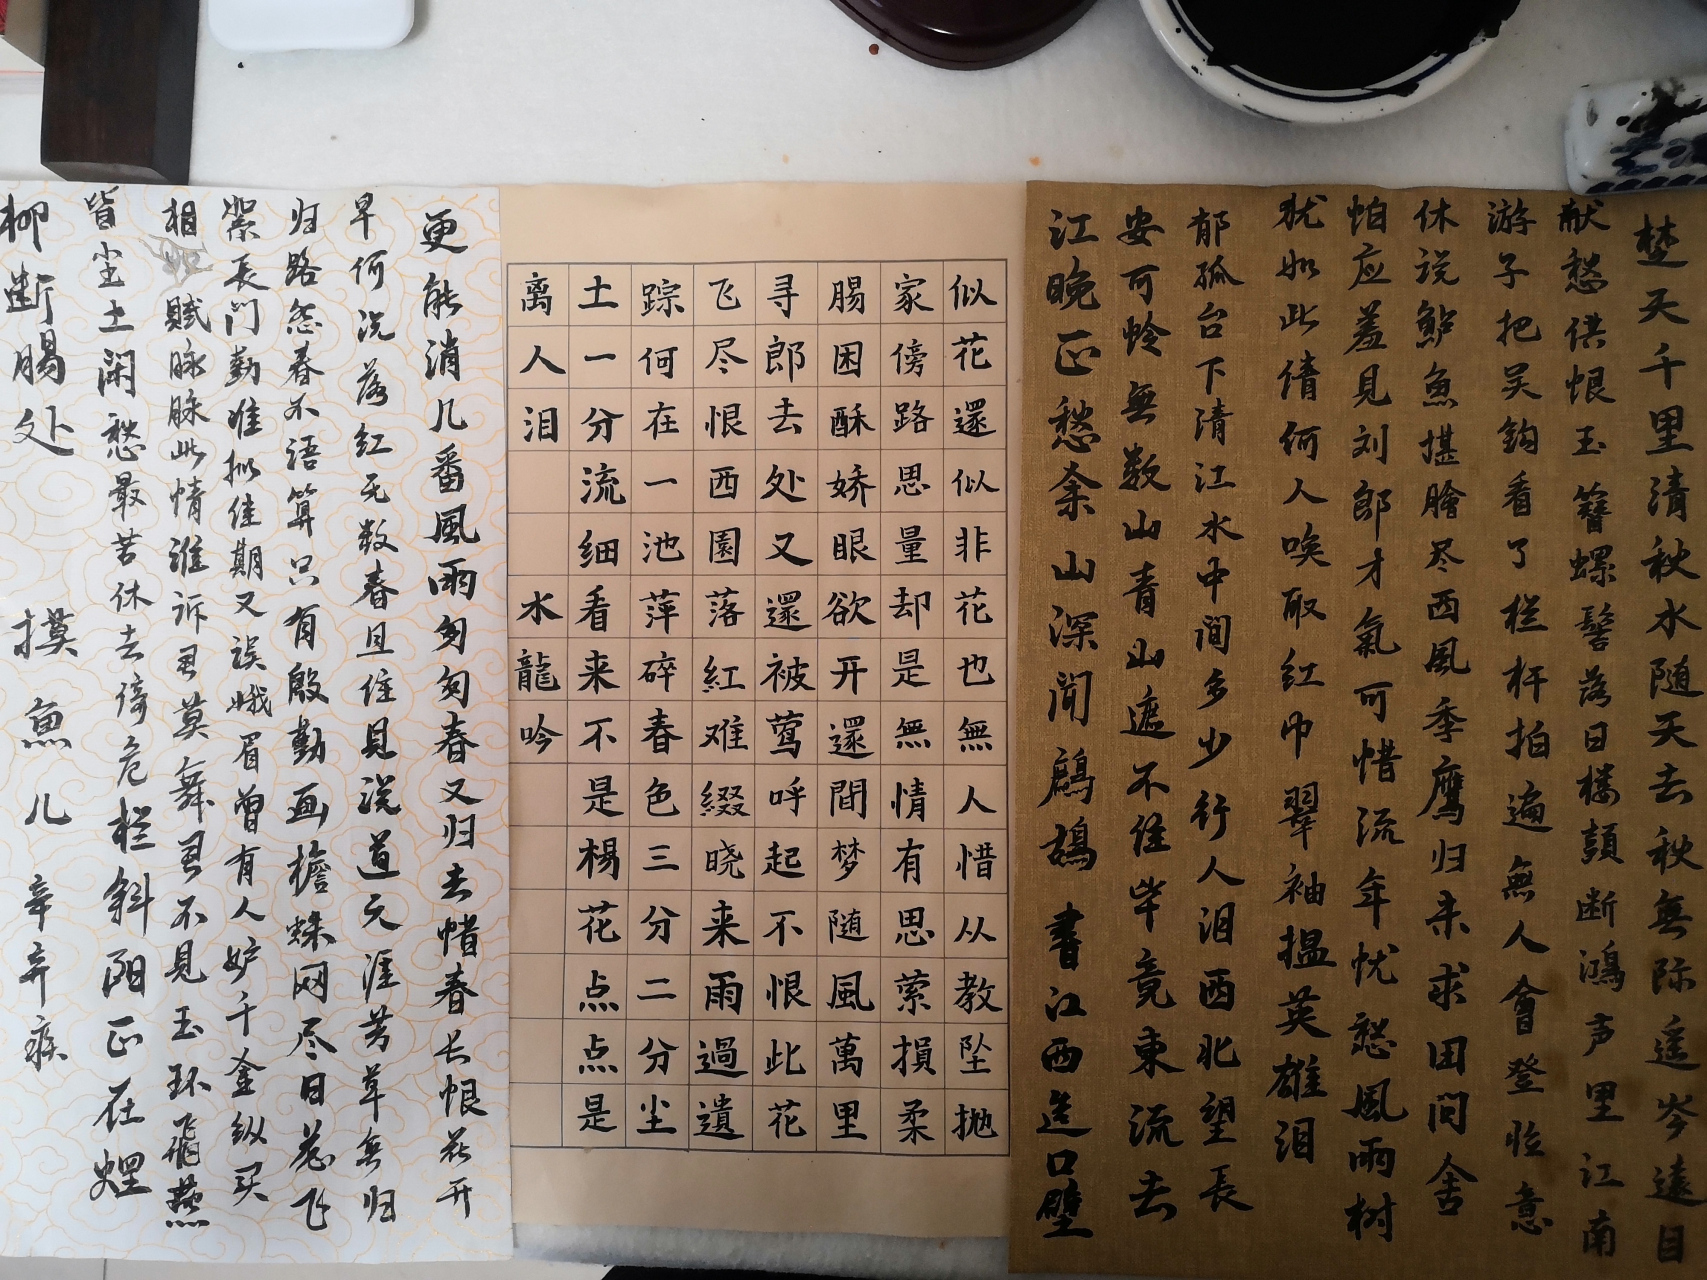 楚天千里清秋水随天去秋無际遥岑遠目
献愁供恨玉簪螺髻落日楼頭断鴻声里江南
游子把吴鈎看了栏杆拍遍無人會登临意
休说鲈魚堪膾尽西風季鹰归来求田问舍
怕应羞见刘郎才氣可惜流年忧愁風雨树
犹如此倩何人唤取红巾翠袖揾英雄泪
郁孤台下清江水中间多少行人泪西北望長
安可怜無数山青山遮不住毕竟東流去
江晚正愁余山深闻鹧鸪 書江西造口壁
似花還似非花也無人惜从教坠抛
家傍路思量却是無情有思萦損柔
腸困酥娇眼欲开還間梦随風萬里
寻郎去处又還被莺呼起不恨此花
飞尽恨西園落紅难綴晓来雨過遺
踪何在一池萍碎春色三分二分尘
土一分流细看来不是楊花点点是
离人泪 水龍吟
更能消几番風雨匆匆春又归去惜春长恨花开
早何况落红无数春且住見说道天涯芳草無归
归路怨春不语算只有殷勤画檐蛛网尽日惹飞
絮長门勤准拟佳期又误蛾眉曾有人妒千金纵买
相如赋脉脉此情谁诉君莫舞君不見玉环飛燕
皆尘土闲愁最苦休去倚危栏斜阳正在烟
柳断腸处 摸魚儿 辛弃疾